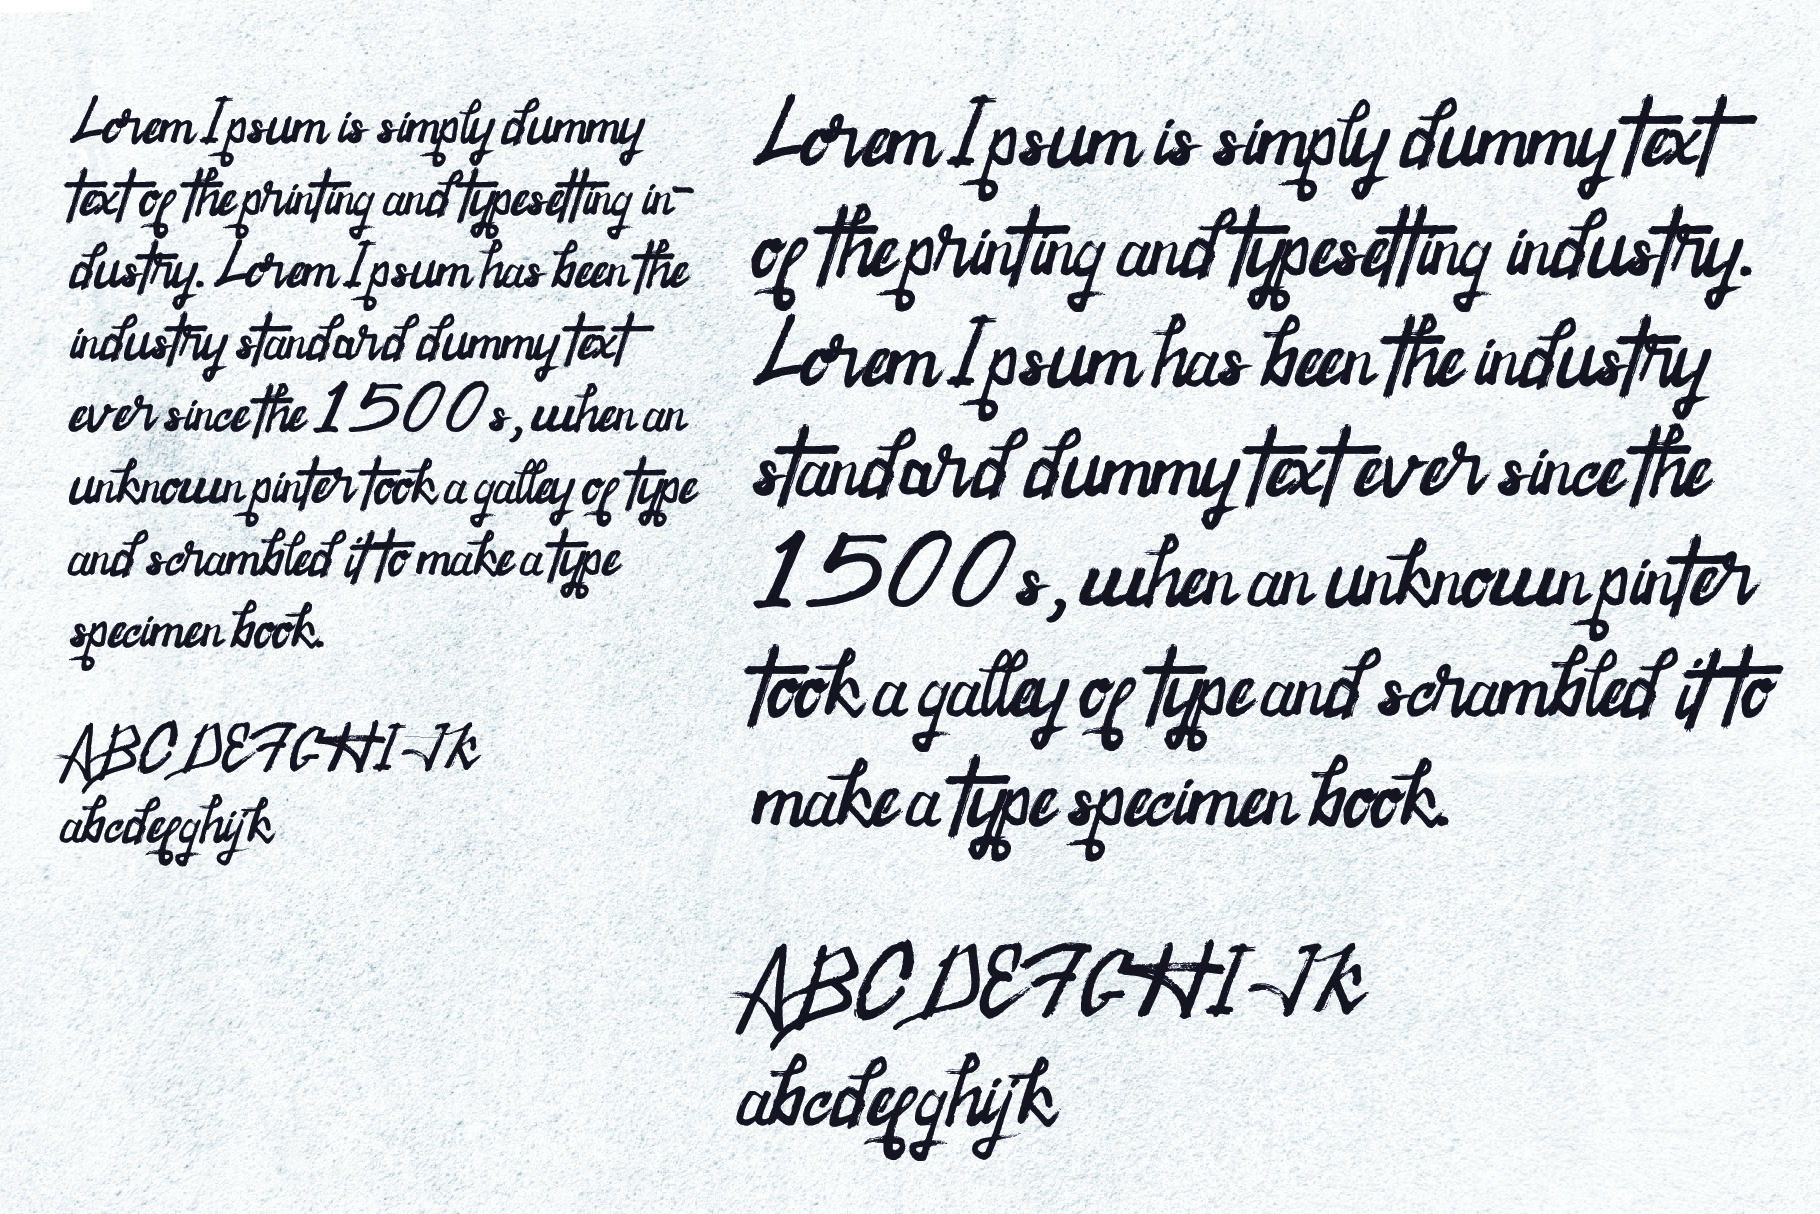 Lorem Ipsum is simply dummy
text of the printing and typesetting in-
dustry. Lorem Ipsum has been the
industry standard dummy text
ever since the 1500s, when an
unknown pinter took a galley of type
and scrambled it to make a type
specimen book.
ABCDEFGHIJK
abcdefghijk
Lorem Ipsum is simply dummy text
of the printing and typesetting industry.
Lorem Ipsum has been the industry
standard dummy text ever since the
1500s, when an unknown pinter
took a galley of type and scrambled it to
make a type specimen book.
ABCDEFGHIJK
abcdefghijk